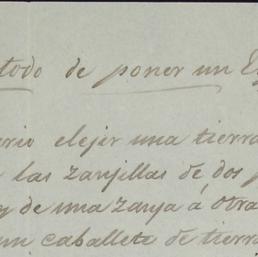 todo de poner un
erio elejir una tierra
las zanjillas de dos
y de una zanja á otra
un caballete de tierra